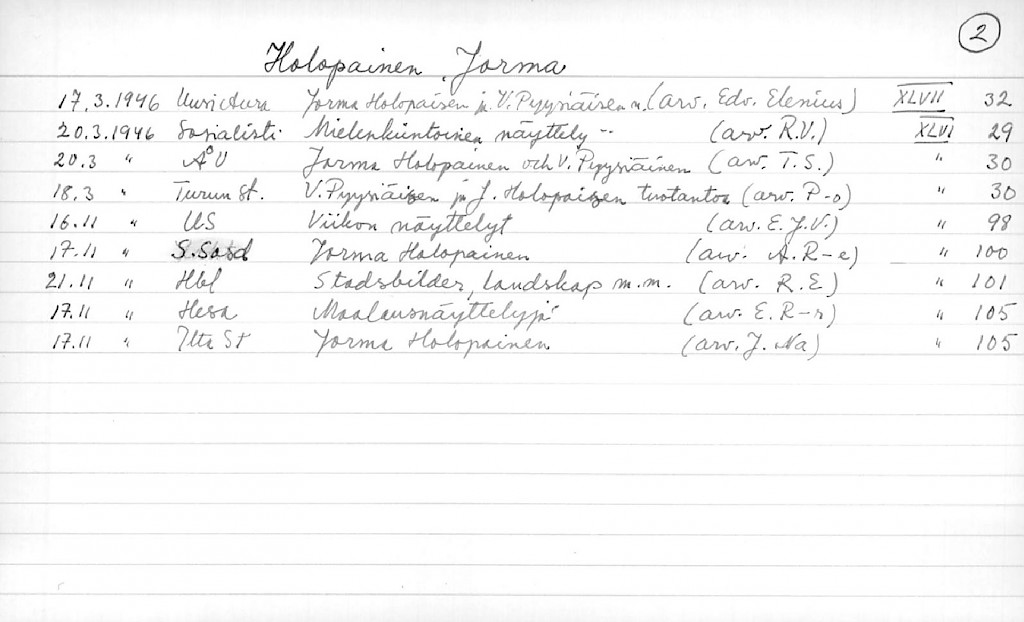 2
Holopainen, Jorma
17.3.1946 Uusi Aura Jorma Holopaisen ja V. Pyysiäisen n. (arv. Edv. Elenius) XLVII 32
20.3.1946 Sosialisti Mielenkiintoinen näyttely -- (arv. R.V.) XLVI 29
20.3 " ÅU Jorma Holopainen och V. Pyysiäinen (arv. T.S.) " 30
18.3 " Turun St. V. Pyysiäisen ja J. Holopaisen tuotantoa (arv. P-o) " 30
16.11 " US Viikon näyttelyt (arv. E.J.V.) " 98
17.11 " S. Sosd Jorma Holopainen (arv. A.R-e) " 100
21.11 " Hbl Stadsbilder, Landskap m.m. (arv. R.E.) " 101
17.11 " Hesa Maalausnäyttelyjä (arv. E.R-r) " 105
17.11 " Ilta St Jorma Holopainen (arv. J. Na) " 105